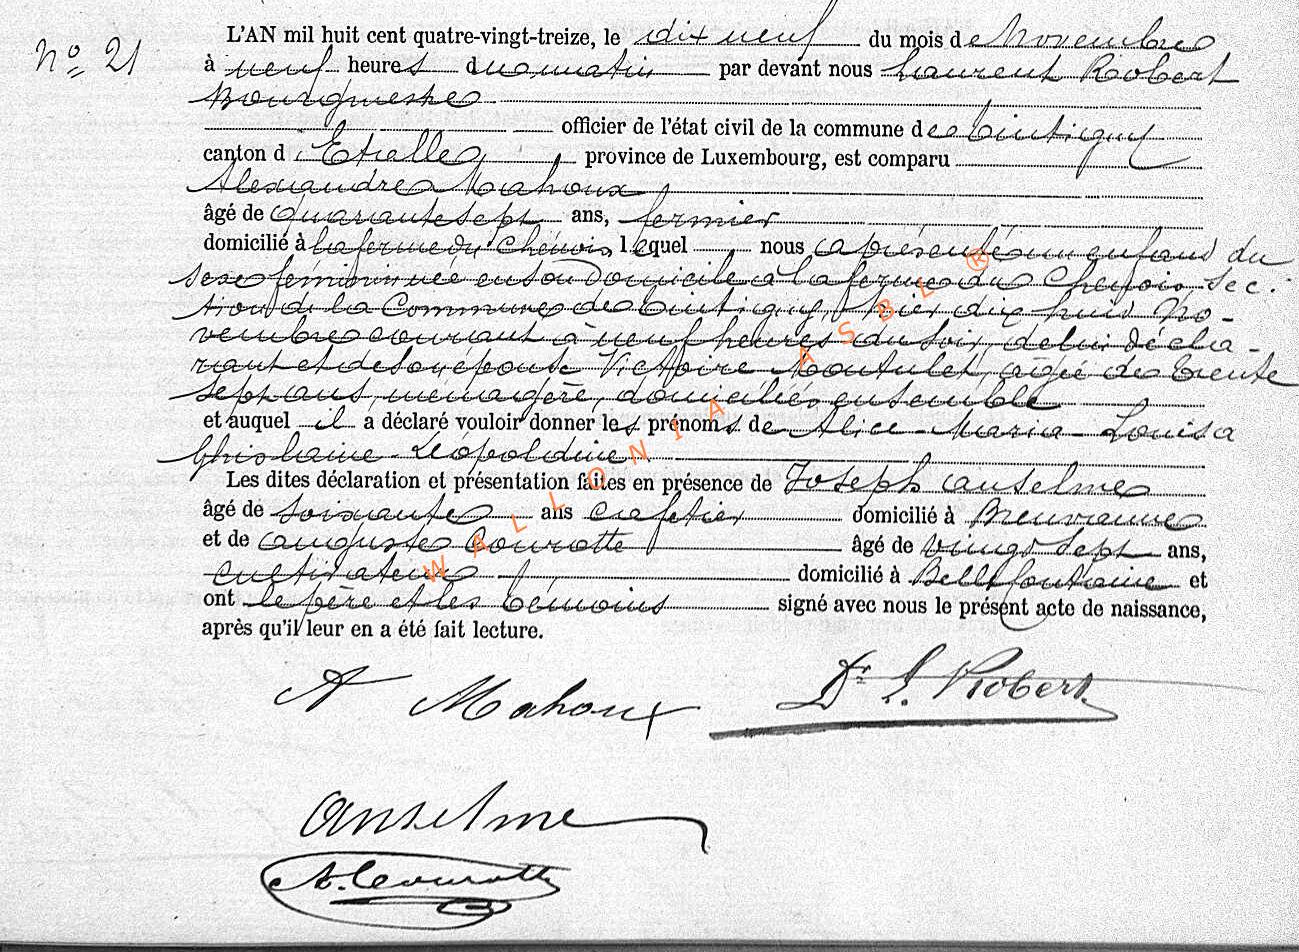 N° 21
L'AN mil huit cent quatre-vingt-treize, le dix neuf du mois de Novembre
à neuf heures du matin par devant nous Laurent Robert
Bourgmestre
officier de l'état civil de la commune de Tintigny
canton d'Etalle, province de Luxembourg, est comparu
Alexandre Mahoux,
âgé de quarante sept ans, fermier
domicilié à la ferme du Chenois, lequel nous a présenté un enfant du
sexe feminin né en son Domicile à la ferme du Chenois, sec.
tion de la Commune de Tintigny, hier dix huit No-
vembre courant à neuf heures du soir, de lui décla-
rant et de son épouse Victoire Moutulet, âgée de trente
sept ans, ménagère, domiciliés ensemble
et auquel il a déclaré vouloir donner les prénoms de Alice-Maria-Louisa
Ghislaine-Léopoldine
Les dites déclaration et présentation faites en présence de Joseph Anselme
âgé de soixante ans cafetier domicilié à Breuvanne
et de Auguste Courotte âgé de vingt sept ans,
cultivateur domicilié à Bellefontaine et
ont le père et les témoins signé avec nous le présent acte de naissance,
après qu'il leur en a été fait lecture.
A Mahoux
Dr L. Robert
Anselme
A. Courotte
WALLONIA ASBL ®